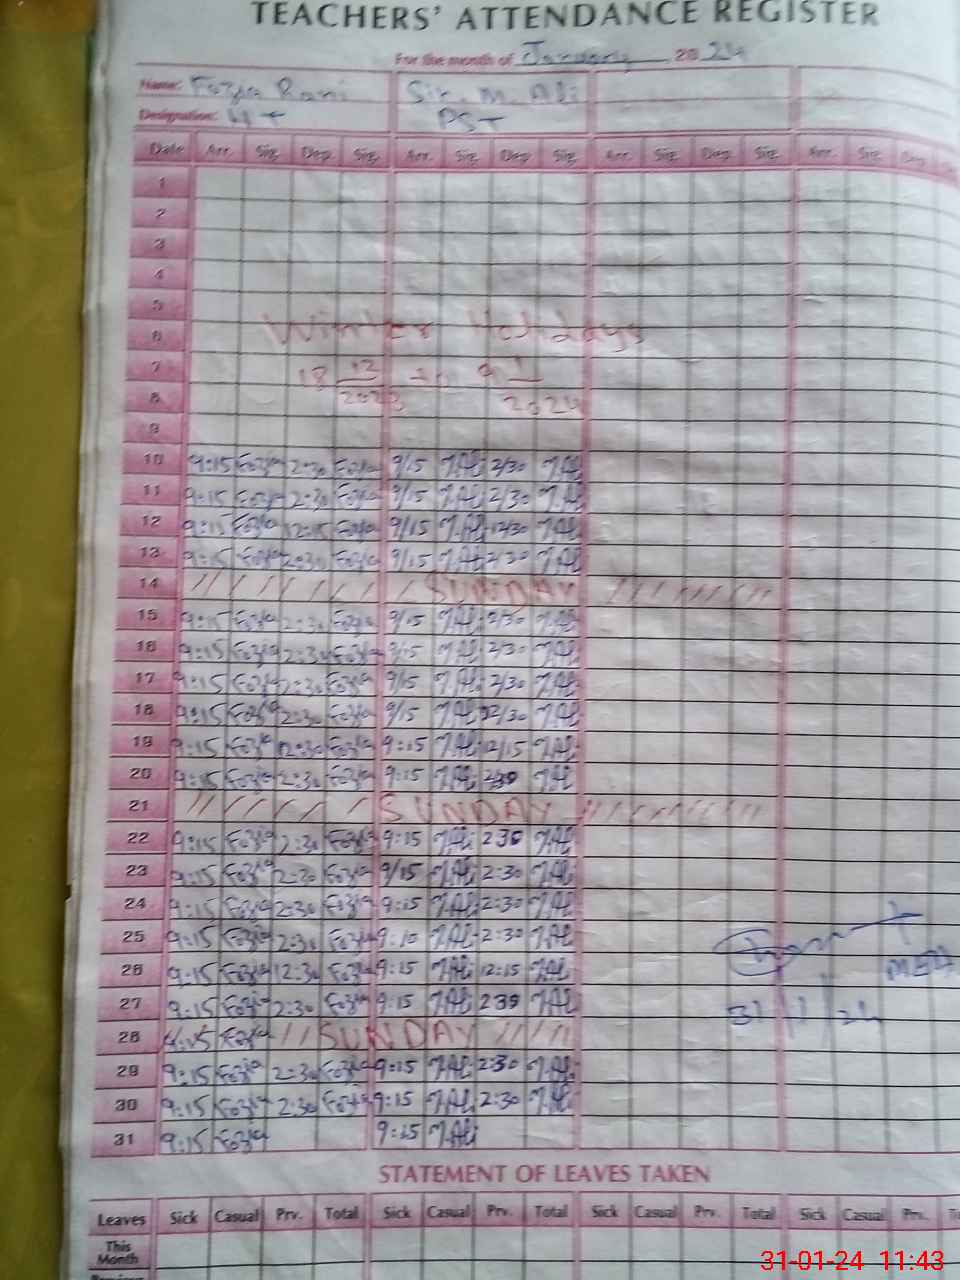 TEACHERS' ATTENDANCE REGISTER
For the month of January, 2024
Name: Fozia Rani Sir. M. Ali
Designation: HT PST
Date Arr. Sig. Dep. Sig. Arr. Sig. Dep. Sig. Arr. Sig. Dep. Sig. Arr. Sig. Dep.
1
2
3
4
5
6
Winter Holidays
7 18 12 to 9 1
8 2023 2024
9
10 9:15 Fozia 2:30 Fozia 9/15 M.Ali 2/30 M.Ali
11 9:15 Fozia 2:30 Fozia 9/15 M.Ali 2/30 M.Ali
12 9:15 Fozia 12:15 Fozia 9/15 M.Ali 12/30 M.Ali
13 9:15 Fozia 2:30 Fozia 9/15 M.Ali 2/30 M.Ali
14 SUNDAY
15 9:15 Fozia 2:30 Fozia 9/15 M.Ali 2/30 M.Ali
16 9:15 Fozia 2:30 Fozia 9/15 M.Ali 2/30 M.Ali
17 9:15 Fozia 2:30 Fozia 9/15 M.Ali 2/30 M.Ali
18 9:15 Fozia 2:30 Fozia 9/15 M.Ali 2/30 M.Ali
19 9:15 Fozia 12:30 Fozia 9:15 M.Ali 12/15 M.Ali
20 9:15 Fozia 2:30 Fozia 9:15 M.Ali 2:30 M.Ali
21 SUNDAY
22 9:15 Fozia 2:30 Fozia 9:15 M.Ali 2 30 M.Ali
23 9:15 Fozia 2:30 Fozia 9/15 M.Ali 2:30 M.Ali
24 9:15 Fozia 2:30 Fozia 9:15 M.Ali 2:30 M.Ali
25 9:15 Fozia 2:30 Fozia 9:10 M.Ali 2:30 M.Ali
26 9:15 Fozia 12:30 Fozia 9:15 M.Ali 12:15 M.Ali
27 9:15 Fozia 2:30 Fozia 9:15 M.Ali 2 30 M.Ali 31/1/24
28 Fozia SUNDAY
29 9:15 Fozia 2:30 Fozia 9:15 M.Ali 2:30 M.Ali
30 9:15 Fozia 2:30 Fozia 9:15 M.Ali 2:30 M.Ali
31 9:15 Fozia 9:15 M.Ali
STATEMENT OF LEAVES TAKEN
Leaves Sick Casual Prv. Total Sick Casual Prv. Total Sick Casual Prv. Total Sick Casual Prv.
This
Month
31-01-24 11:43